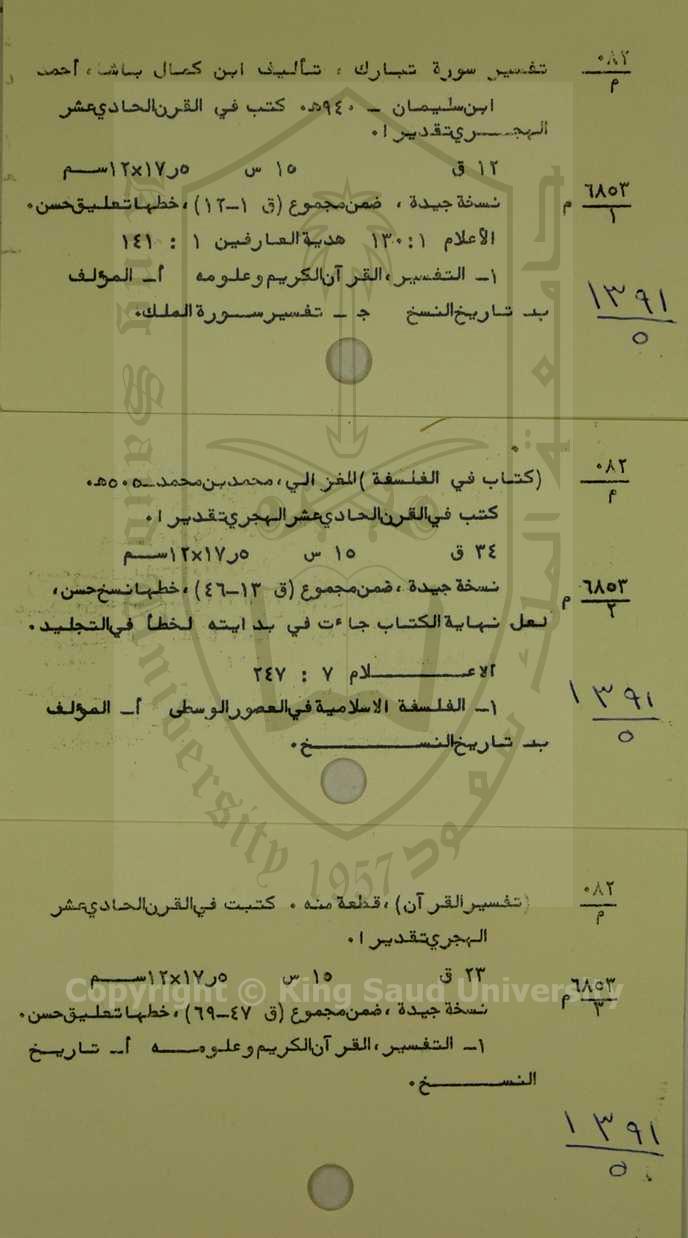 ٠٨٢
م
تفسير سورة تبارك ، تأليف ابن كمال باشا ، أحمد
ابن سليمان ـ ٩٤٠هـ٠ كتب في القرن الحادي عشر
الهجـــري تقديرا ٠
١٢ ق ١٥ س ١٧٫٥×١٢ســم
٦٨٥٣
١
م
نسخة جيدة ، ضمن مجموع (ق ١-١٢) ، خطها تعليق حسن٠
الأعلام ١: ١٣٠ هدية العارفين ١ : ١٤١
١ـ التفسير ، القرآن الكريم وعلومه أ ـ المؤلف
بـ تاريخ النسخ جـ ـ تفسير ســورة الملك٠
١٣٩١
٥
٠٨٢
م
(كتاب في الفلسفة ) للغزالي ، محمد بن محمد ـ ٥٠٥هـ٠
كتب في القرن الحادي عشر الهجري تقديرا ٠
٣٤ ق ١٥ س ١٧٫٥×١٢ســم
٦٨٥٣
٢
م
نسخة جيدة ، ضمن مجموع (ق ١٣-٤٦) ، خطها نسخ حسن ،
لعل نهاية الكتاب جاءت في بدايته لخطأ في التجليد ٠
الاعـــــــــلام ٧ : ٢٤٧
١ـ الفلسفة الاسلامية في العصور الوسطى أ ـ المؤلف
بـ تاريخ النســـــــــخ ٠
١٣٩١
٥
٠٨٢
م
(تفسير القرآن) ، قطعة منه ٠ كتبت في القرن الحادي عشر
الهجري تقديرا ٠
٢٣ ق ١٥ س ١٧٫٥×١٢ســم
٦٨٥٣
٣
م
نسخة جيدة ، ضمن مجموع (ق ٤٧-٦٩) ، خطها تعليق حسن ٠
١ـ التفسير ، القرآن الكريم وعلومـــه أ ـ تاريخ
النســـــــخ ٠
١٣٩١
٥
جامعة الملك سعود
King Saud University
1957
Copyright © King Saud University